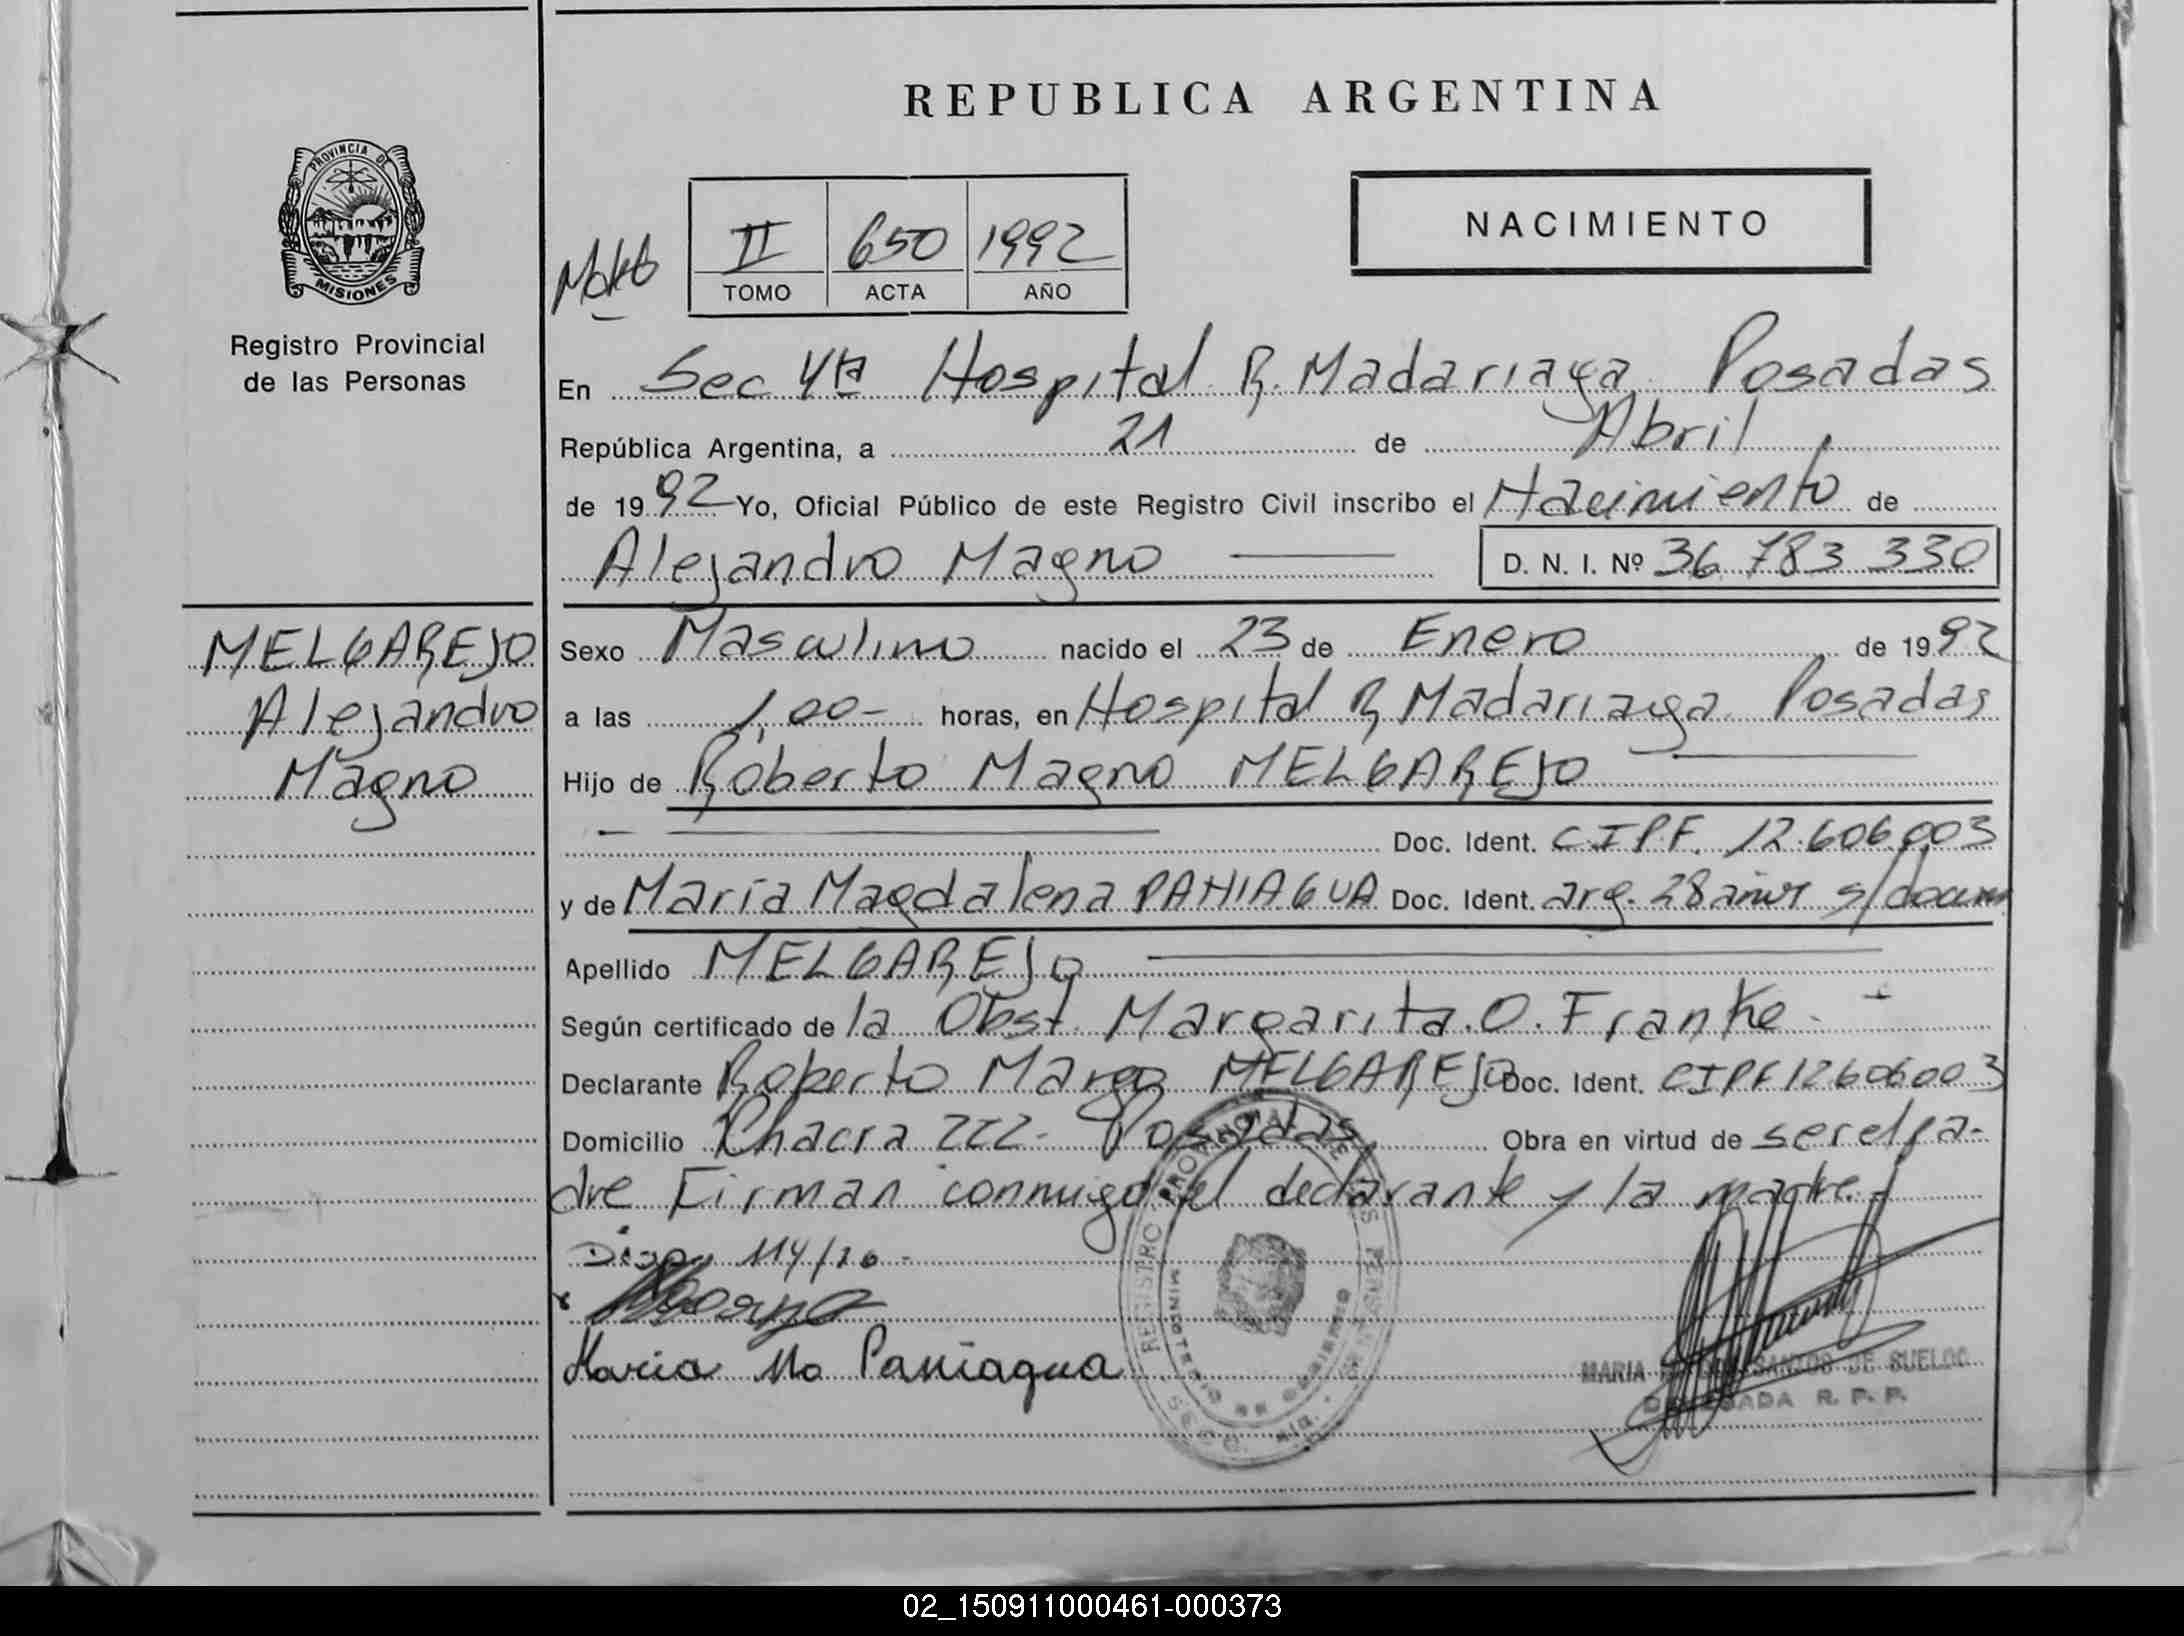 REPUBLICA ARGENTINA
PROVINCIA DE
MISIONES
Registro Provincial
de las Personas
II 650 1992
TOMO ACTA AÑO
NACIMIENTO
En Sec 4ta Hospital R. Madariaga Posadas
República Argentina, a 21 de Abril
de 1992 Yo, Oficial Público de este Registro Civil inscribo el Nacimiento de
Alejandro Magno D. N. I. Nº 36 783 330
MELGAREJO
Alejandro
Magno
Sexo Masculino nacido el 23 de Enero de 1992
a las 1,00- horas, en Hospital R Madariaga Posadas
Hijo de Roberto Magno MELGAREJO
Doc. Ident. C.I.P.F. 12.606.003
y de María Magdalena PANIAGUA Doc. Ident. arg. 28 años s/docum
Apellido MELGAREJO
Según certificado de la Obst. Margarita.O.Franke.-
Declarante Roberto Margo MELGAREJO Doc. Ident. CIPF 12606003
Domicilio Chacra 222- Posadas Obra en virtud de ser el pa-
dre Firman conmigo el declarante y la madre.-
114/
Maria Ma Paniagua
REGISTRO PROVINCIAL DE LAS PERSONAS
MINISTERIO DE GOBIERNO
MARIA SANTOS DE SUELDO
DELEGADA R. P. P.
02_150911000461-000373